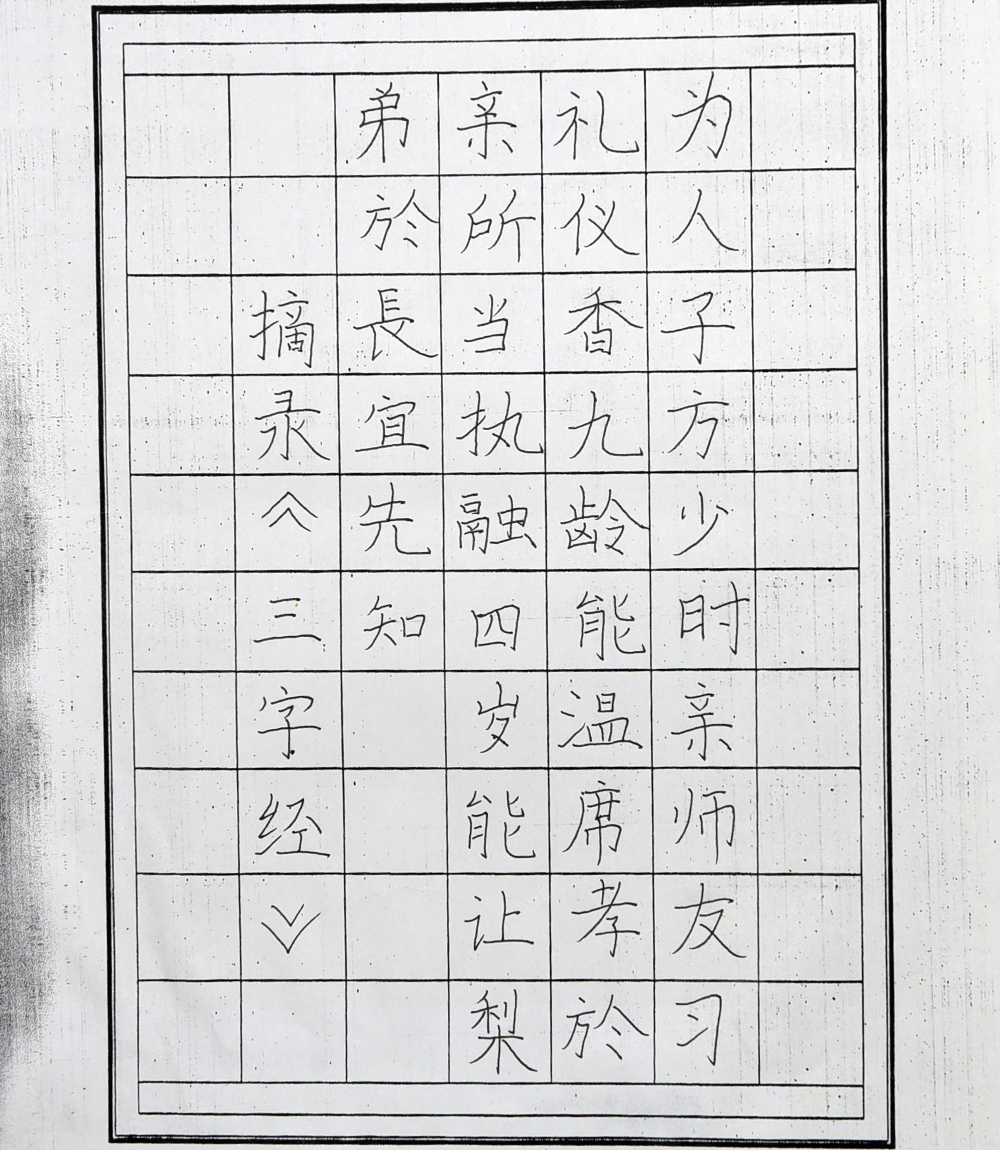 为人子方少时亲师友习
礼仪香九龄能温席孝於
亲所当执融四岁能让梨
弟於長宜先知
摘录《三字经》